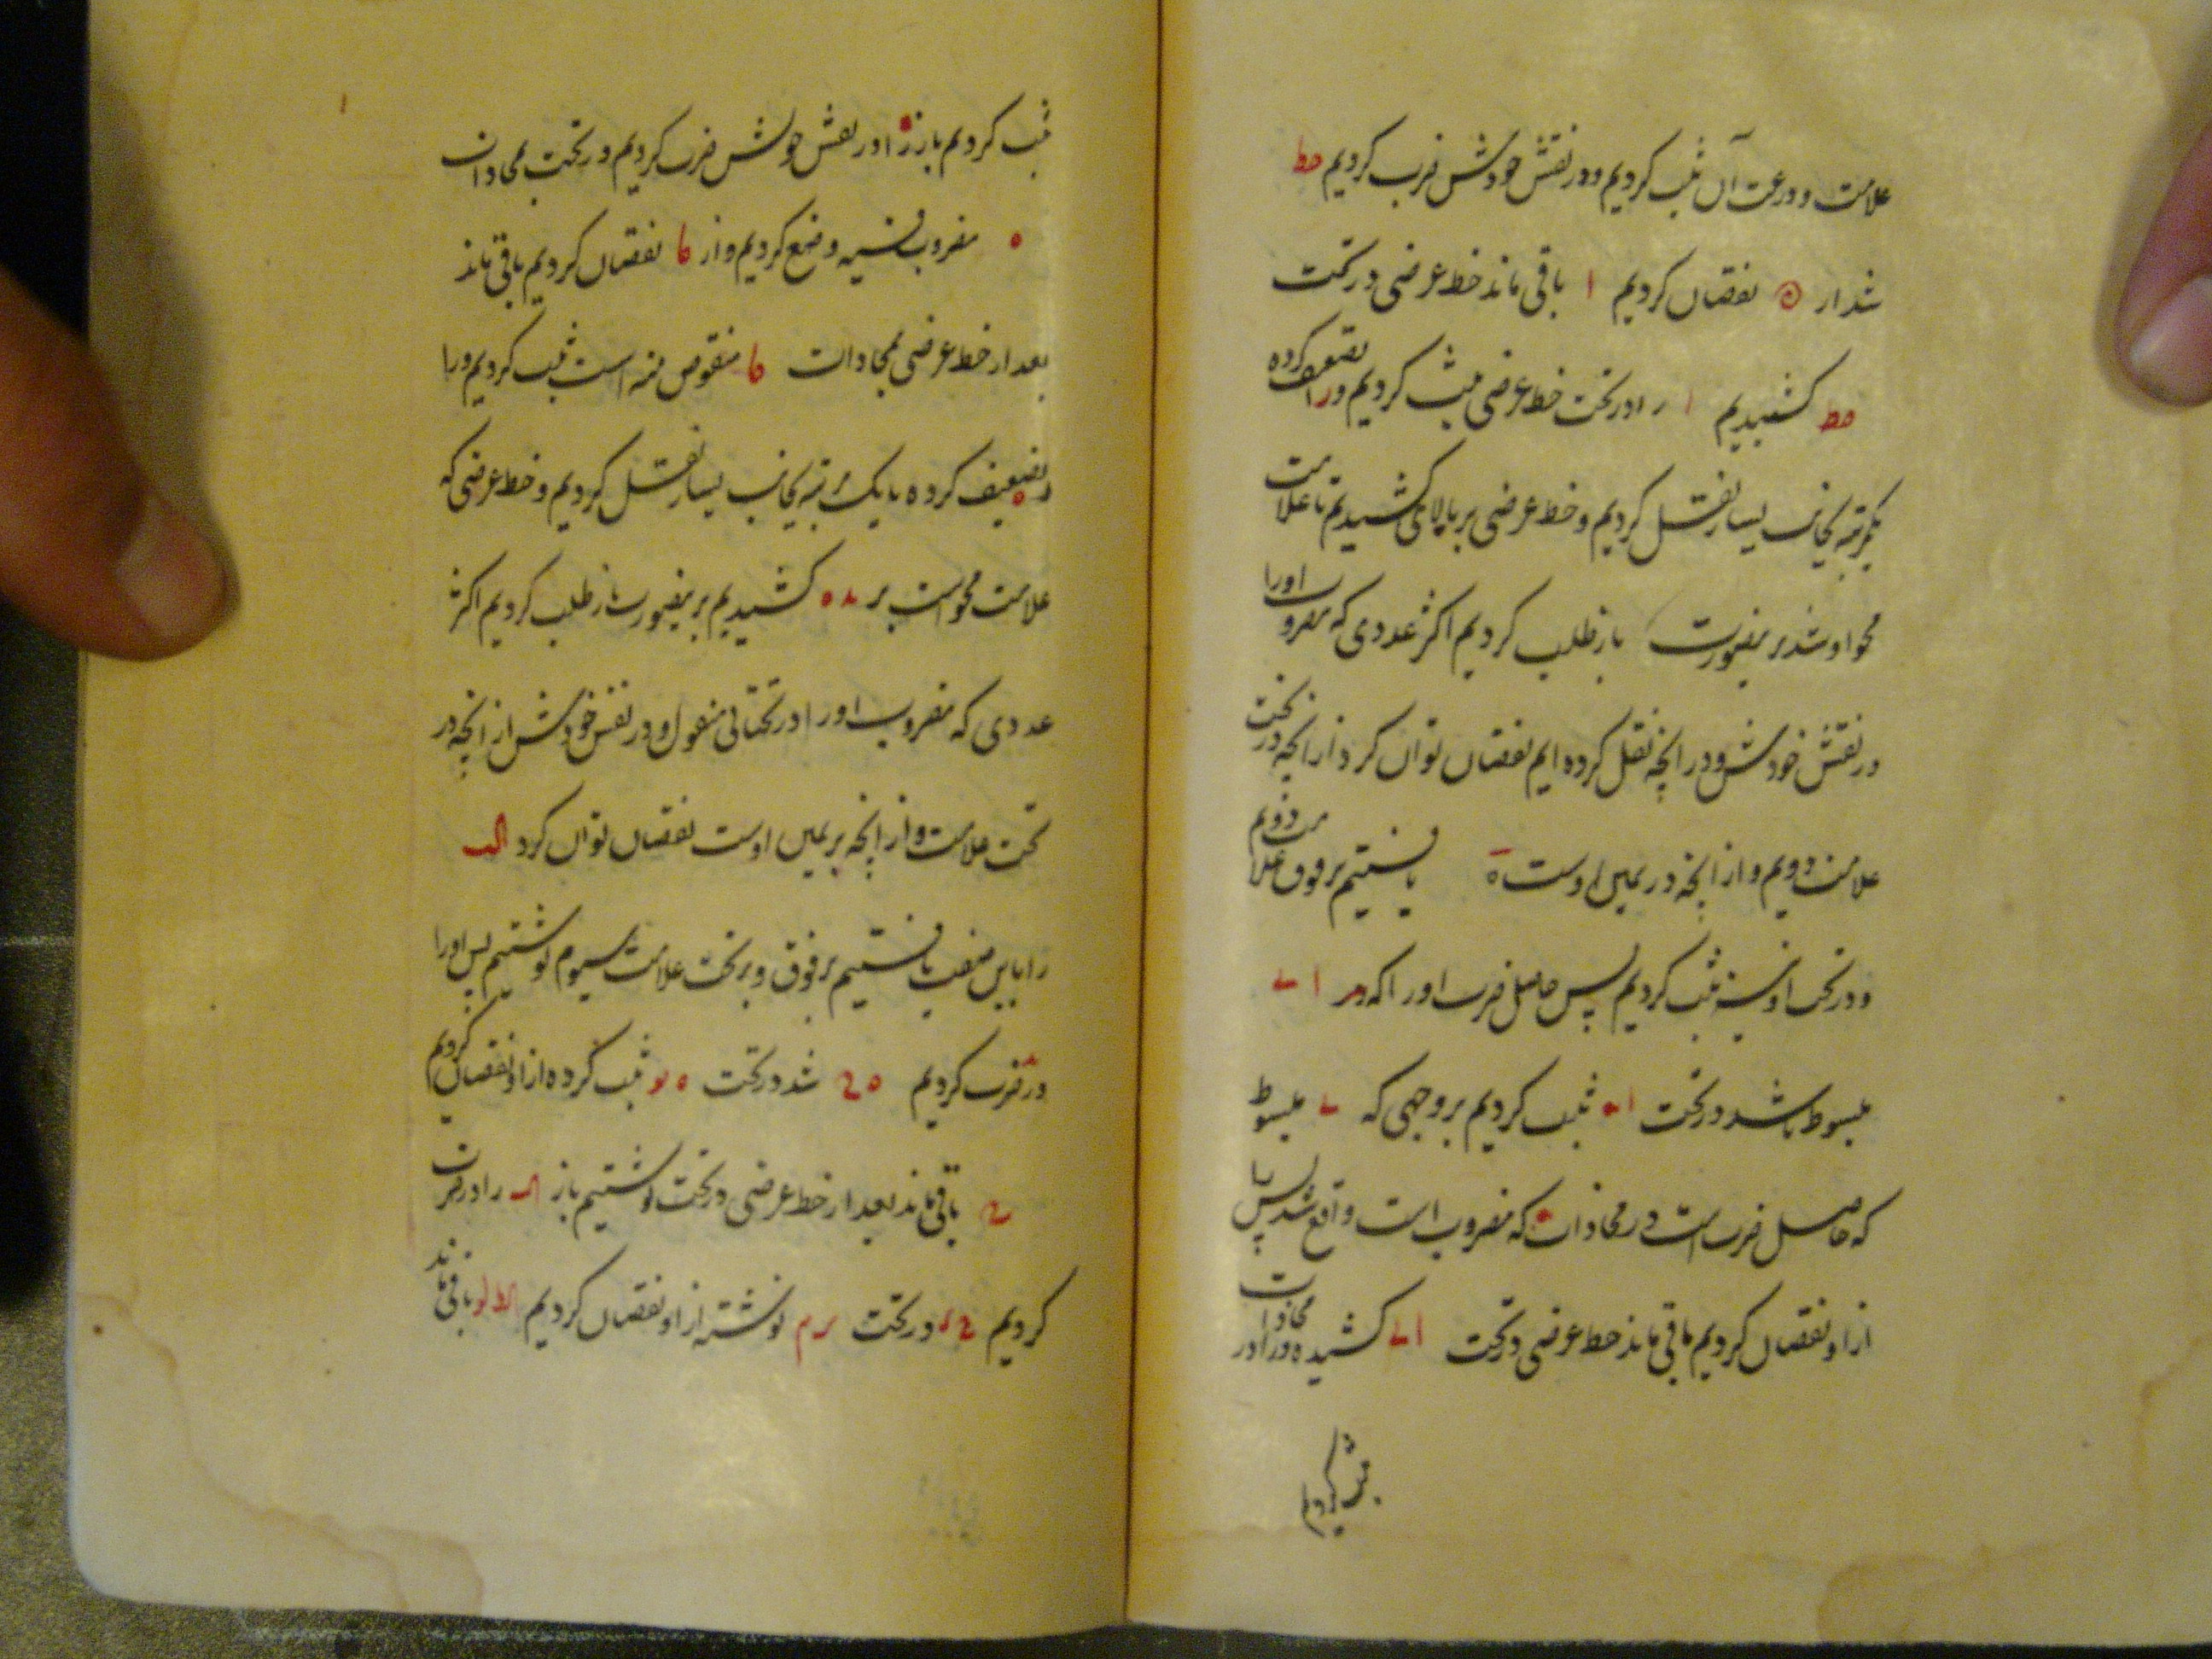 علامت و در تحت آن ثبت کردیم و در نفس خودش ضرب کردیم مط
شد از نقصان کردیم ا باقی ماند خط عرضی در تحت
مط کشیدیم ا را در تحت خط عرضی ثبت کردیم و را تضعیف کرده
بمرتبه بجانب یسار نقل کردیم و خط عرضی بر بالای کشیدیم تا علامت
محو او شد برینصورت باز طلب کردیم اکثر عددی که مضروب او را
در نفس خودش و در آنچه نقل کرده ایم نقصان توان کرد از آنچه در تحت
علامت دویم و از آنچه در یمین اوست ه یافتیم بر فوق علامت دویم
و در تحت او نسیه ثبت کردیم پس حاصل ضرب او را که در
مبسوط باشد در تحت ثبت کردیم بر وجهی که مبسوط
که حاصل ضرب است در محاذات که مضروب است واقع شد پس
از او نقصان کردیم باقی ماند خط عرضی در تحت کشیده و را در محاذات
ثبت کردیم
ثبت کردیم باز را در نفس خودش ضرب کردیم در تحت بمحاذات
ه مضروب نسیه وضع کردیم و از ما نقصان کردیم باقی ماند
بعد از خط عرضی بمحاذات ما منقوص منه است ثبت کردیم و را
تضعیف کرده با یک مرتبه بجانب یسار نقل کردیم و خط عرضی که
علامت محو است بر کشیدیم برینصورت باز طلب کردیم اکثر
عددی که مضروب او را در تحتانی منقول و در نفس خودش از آنچه در
تحت علامت و از آنچه بر یمین اوست نقصان توان کرد
را باین صفت یافتیم بر فوق و بر تحت علامت سیوم نوشتیم پس او را
در ضرب کردیم شد در تحت ثبت کرده از او نقصان کردیم
باقی ماند بعد از خط عرضی در تحت نوشتیم باز را در ضرب
کردیم در تحت نوشته از او نقصان کردیم باقی ماند